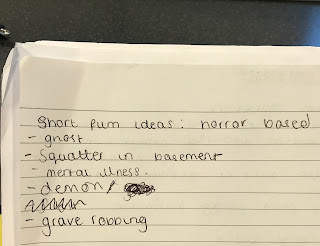 Short film ideas: horror based
- ghost
- Squatter in basement
- mental illness.
- demon/
- grave robbing